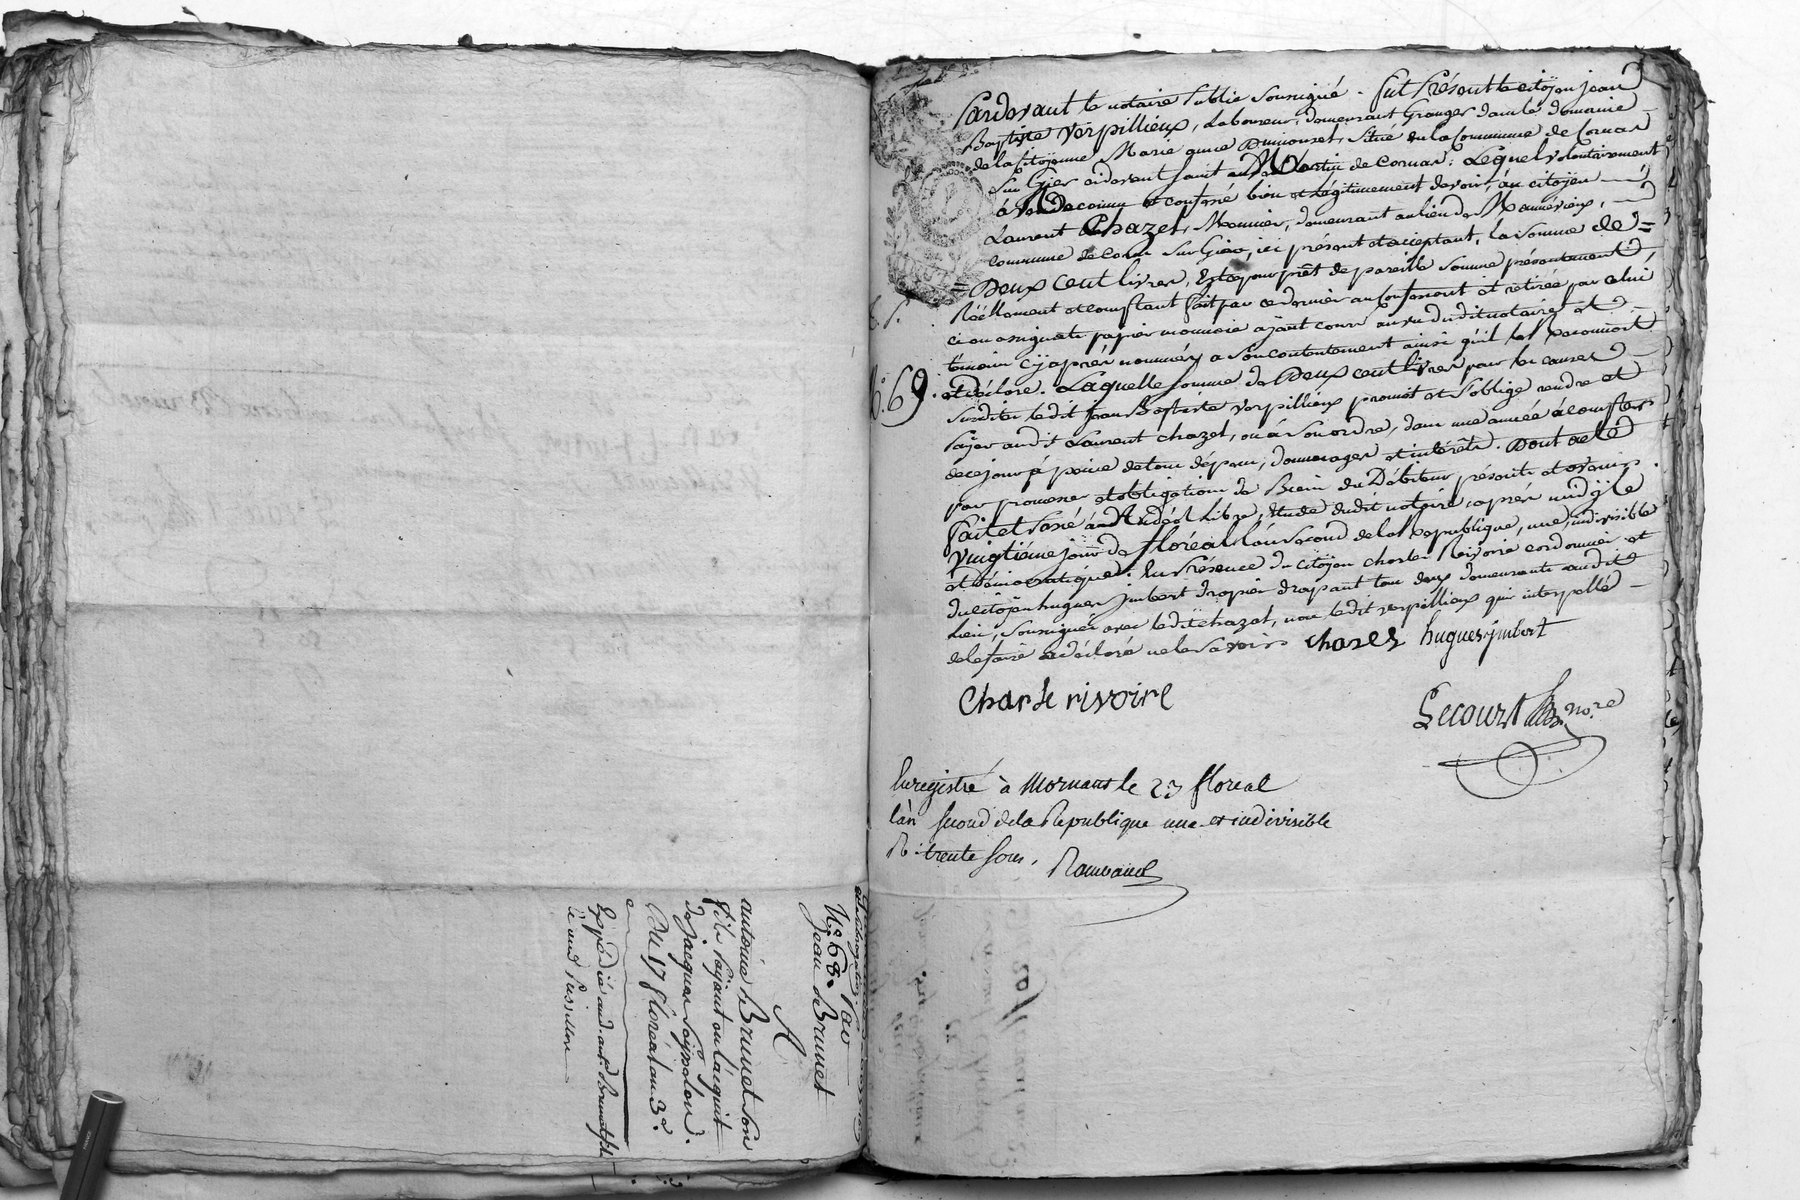 Pardevant le notaire Public Soussigné. fut Présent le citoÿen jean
Baptiste Verpillieux, Laboureur, demeurant Granger dans le domaine
de la Citoÿenne Marie anne Dumouset, Situé en la Commune de Cornas
Sur Gier cidevant Saint Martin de Cornas; Lequel volontairement
à reconnu et confessé bien et légitimement devoir, au citoÿen
Laurent Chazet, Meunier, demeurant au lieu de Manévieux,
commune de Cornas Sur Gier, ici présent et acceptant, la Somme de =
= Deux Cent livres, Est ce pour prêt de pareille Somme présentement,
Réellement et comptant fait par ce dernier au Confessant et retirée par celui
ci en assignats papier monnoie aÿant cours au vu dudit notaire et
témoins cÿ après nommés a Son contentement ainsi qu'il les reconnoit
et déclare. Laquelle Somme de Deux cent livres pour les causes
Susdites ledit Jean Baptiste Verpillieux promet et S'oblige rendre et
Païer audit Laurent Chazet, ou à Son ordre, dans une année à compter
de ce jour à peine de tous dépens, dommages et intérêts. Dont acte
par promesses et obligations de Biens du Débiteur présents et avenirs.
Fait et Passé à Andéol Libre, étude dudit notaire après midÿ le
Vingtième jour de floréal l'an Second de la République, une, indivisible
et démocratique. En Présence du citoÿen charles Rivoire cordonnier et
du citoÿen hugues Imbert drapier drapant tous deux demeurants audit
lieu, Soussignés avec ledit chazet, non ledit verpillieux qui interpellé
de le faire a déclaré ne le Savoir. Chazet hugues imbert
Charle rivoire
Lecourt No.re
N.o 69.
Enregistré à Mornant le 23 floreal
l'an Second de la Republique une et indivisible
R. trente Sous.
N.o 68. Par
Jean Brunet
A
antoine Brunet Son
fils Païant en l'acquit
de Jacques
Du 17 floréal an 2.d
Expédié